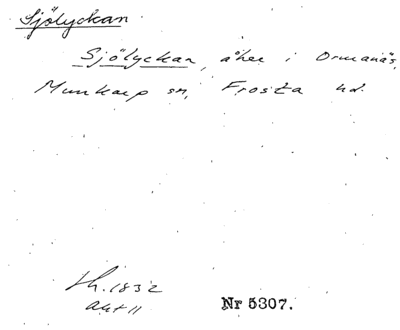 Sjölyckan
Sjölyckan, åker i Ormanäs,
Munkarp sn, Frosta hd.
Lh. 1832
akt 11
Nr 5307.